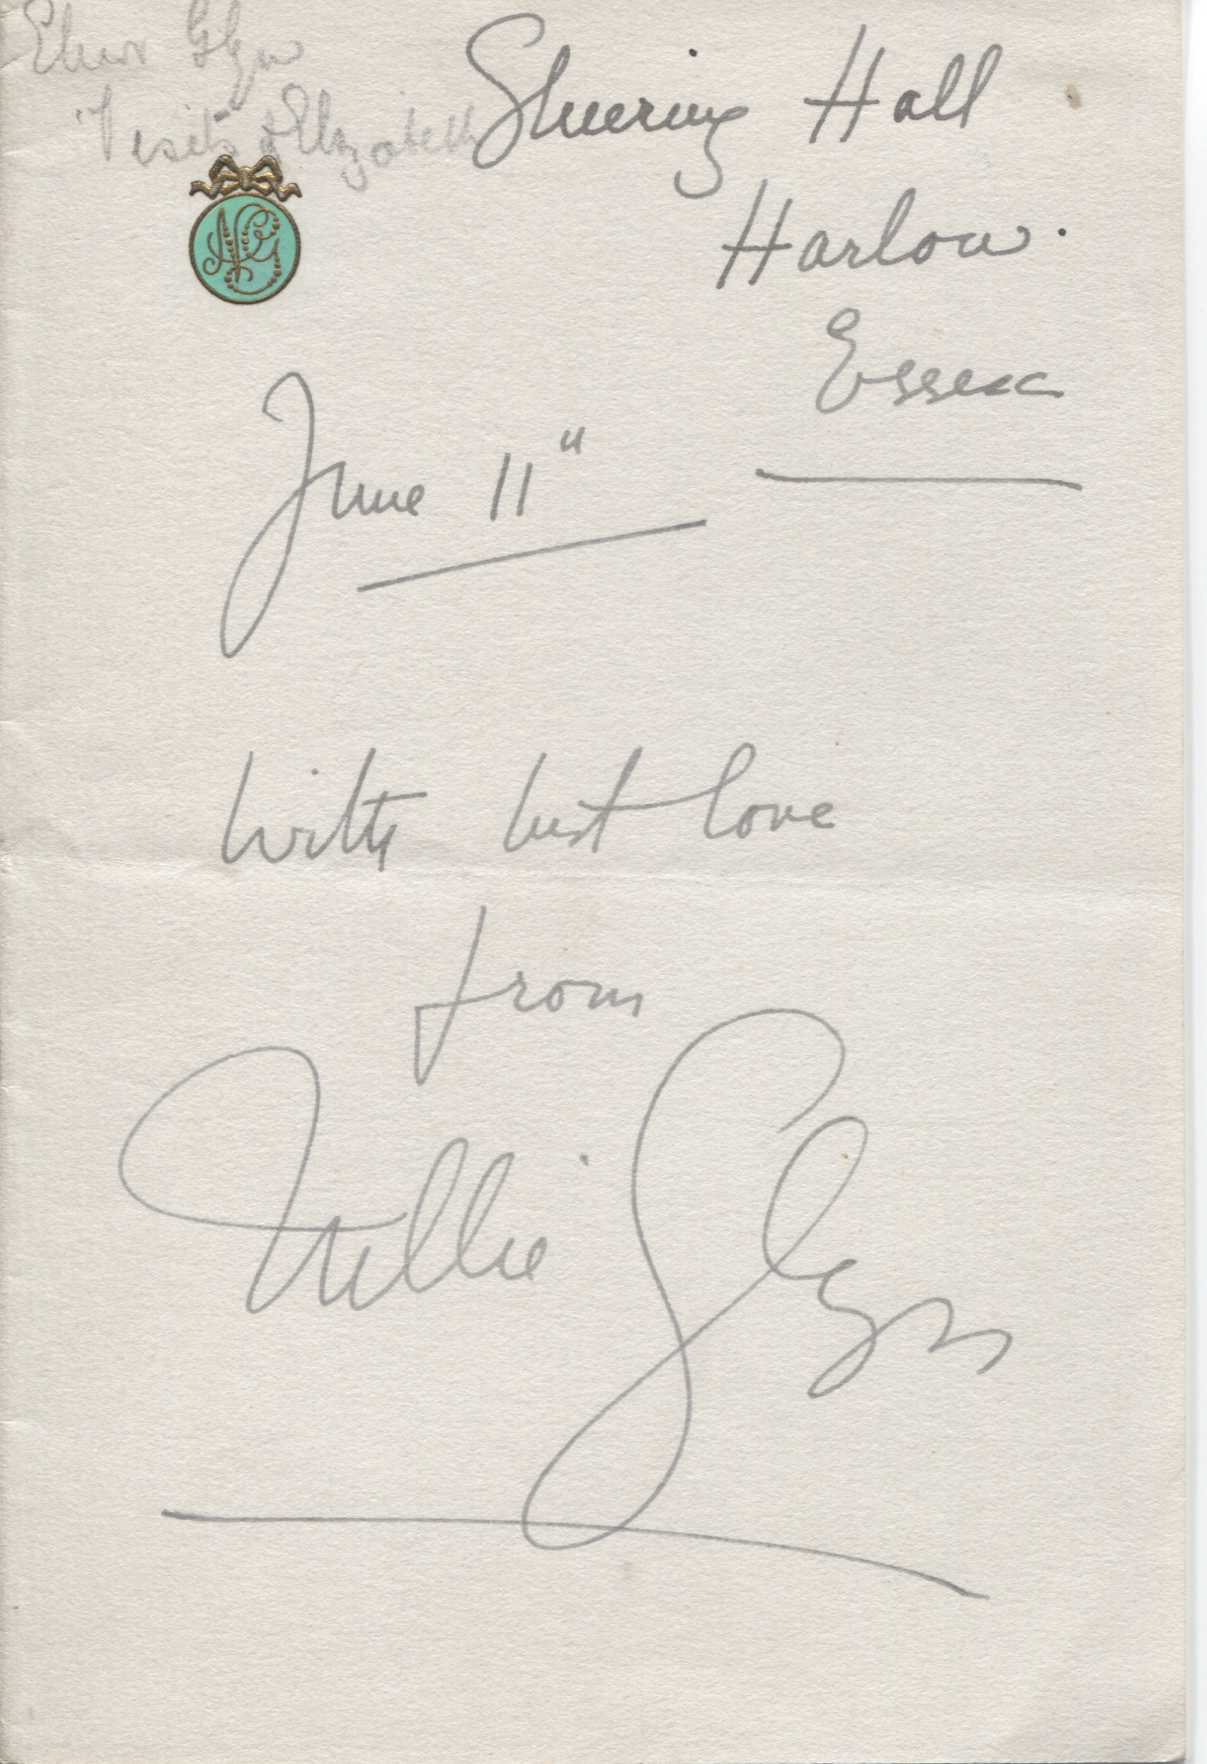 Elinor Glyn
'Visits of Elizabeth
Sheering Hall
Harlow.
Essex
NG
June 11"
With best love
from
Nellie Glyn